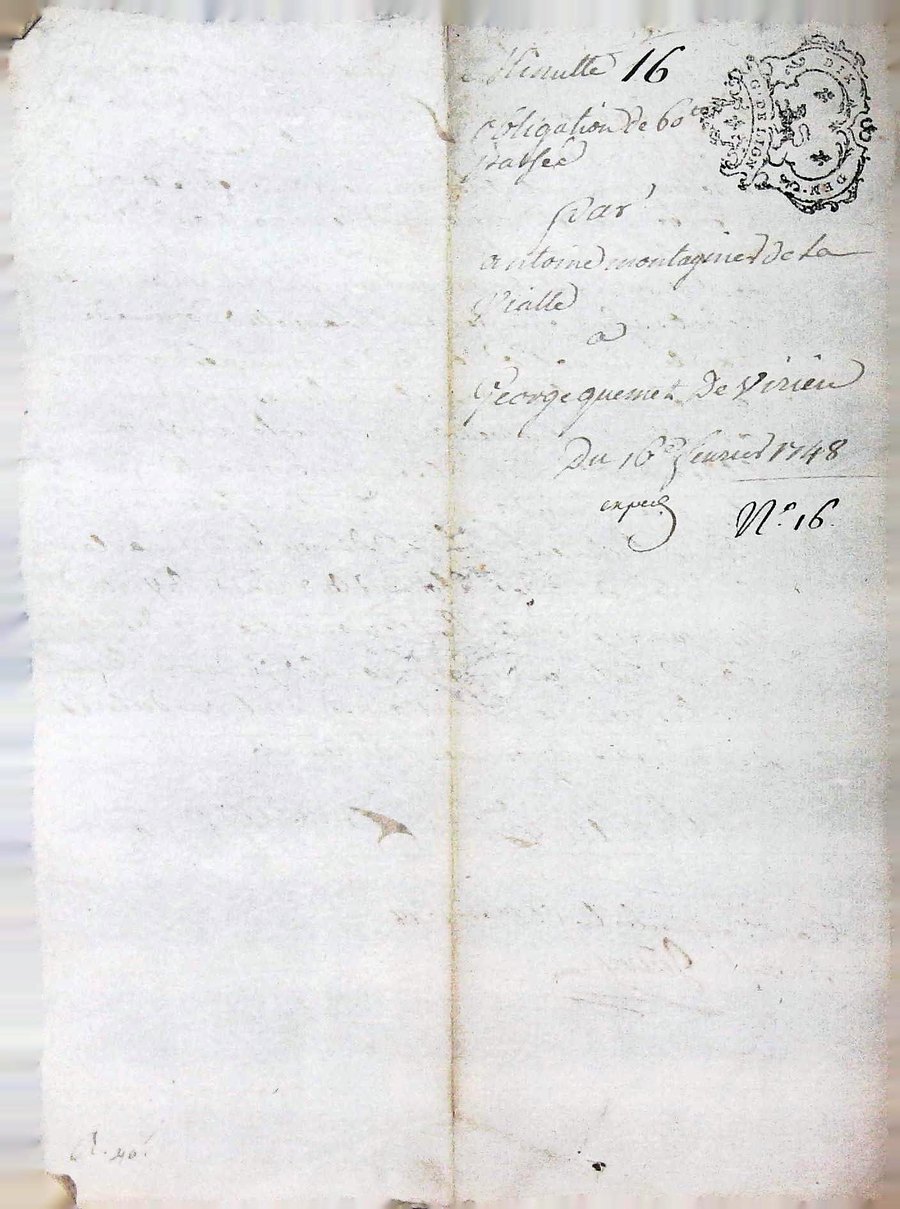 Minutte 16
obligation de 60 lt
passée
par
antoine montagnier de la
Vialle
a
George quemet De Virieu
Du 16e fevrier 1748
exped.
N.o 16.